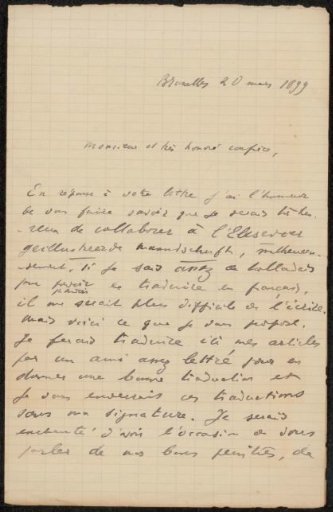 Bruxelles 20 mars 1899
Monsieur et très honoré confrère,
En réponse à votre lettre j'ai l'honneur
de vous faire savoir que je serais très heu-
reux de collaborer à l'Elsevier
geillustreerde maandschrift, malheureu-
sement, si je sais assez de hollandais
pour pouvoir en traduire en français,
il me serait plus difficile de l'écrire.
mais voici ce que je vous propose.
Je ferais traduire ici mes articles
par un ami assez lettré pour en
donner une bonne traduction et
je vous enverrais ces traductions
sous ma signature. Je serais
enchanté d'avoir l'occasion de vous
parler de nos bons peintres, de